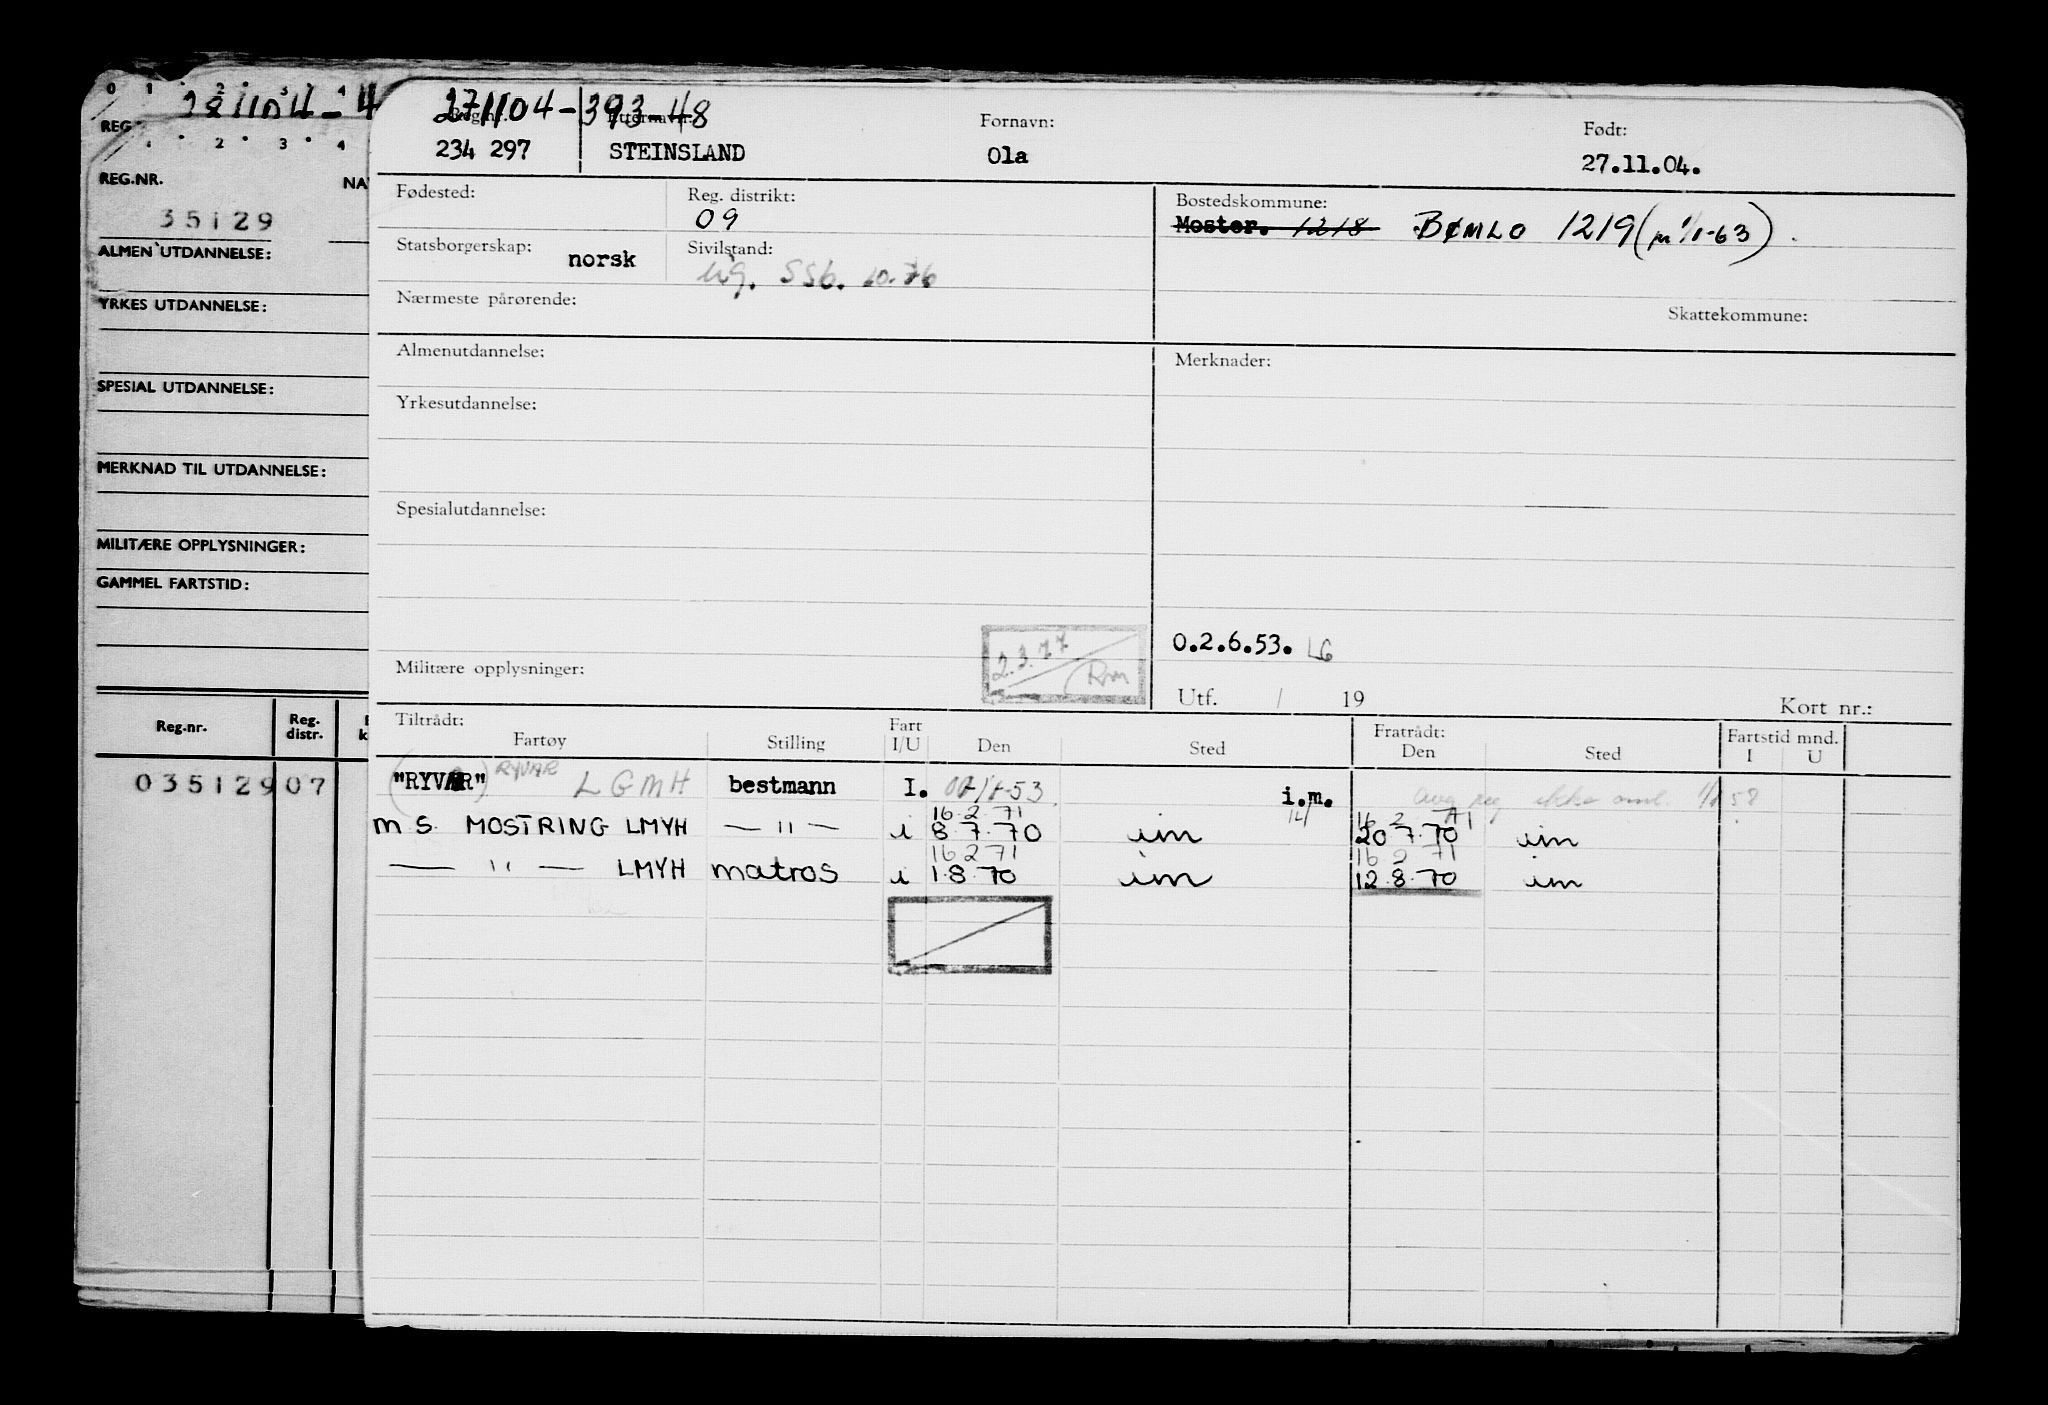 0 1 2 3 4
281104-4
REG.
1 2 3 4
REG.NR. NA
35129
ALMEN UTDANNELSE:
YRKES UTDANNELSE:
SPESIAL UTDANNELSE:
MERKNAD TIL UTDANNELSE:
MILITÆRE OPPLYSNINGER:
GAMMEL FARTSTID:
Reg.nr. Reg. distr.
035129 07
271104-393-48
Reg.nr. Etternavn: Fornavn: Født:
234 297 STEINSLAND Ola 27.11.04.
Fødested: Reg. distrikt: Bostedskommune:
09 Moster. 1218 BØMLO 1219 (pr 1/1-63)
Statsborgerskap: norsk Sivilstand:
ug. SSb. 10.76
Nærmeste pårørende: Skattekommune:
Almenutdannelse: Merknader:
Yrkesutdannelse:
Spesialutdannelse:
0.2.6.53. LG
2.3.77 Rm
Militære opplysninger:
Utf. / 19 Kort nr.:
Tiltrådt: Fart Fratrådt: Fartstid mnd.
Fartøy Stilling I/U Den Sted Den Sted I U
"RYVAR" RYVAR LGMH bestmann I. -53 i.m.
16.2.71 16 2 71
M S. MOSTRING LMYH — " — i 8.7.70 im 20 7.70 im
16 2 71 16 2 71
— " — LMYH matros i 1.8.70 im 12.8.70 im